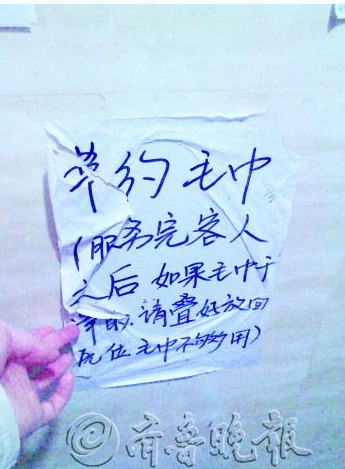 节约毛巾
(服务完客人
之后 如果毛巾干
净的.请叠好放回
原位 毛巾不够用)
@齐鲁晚报